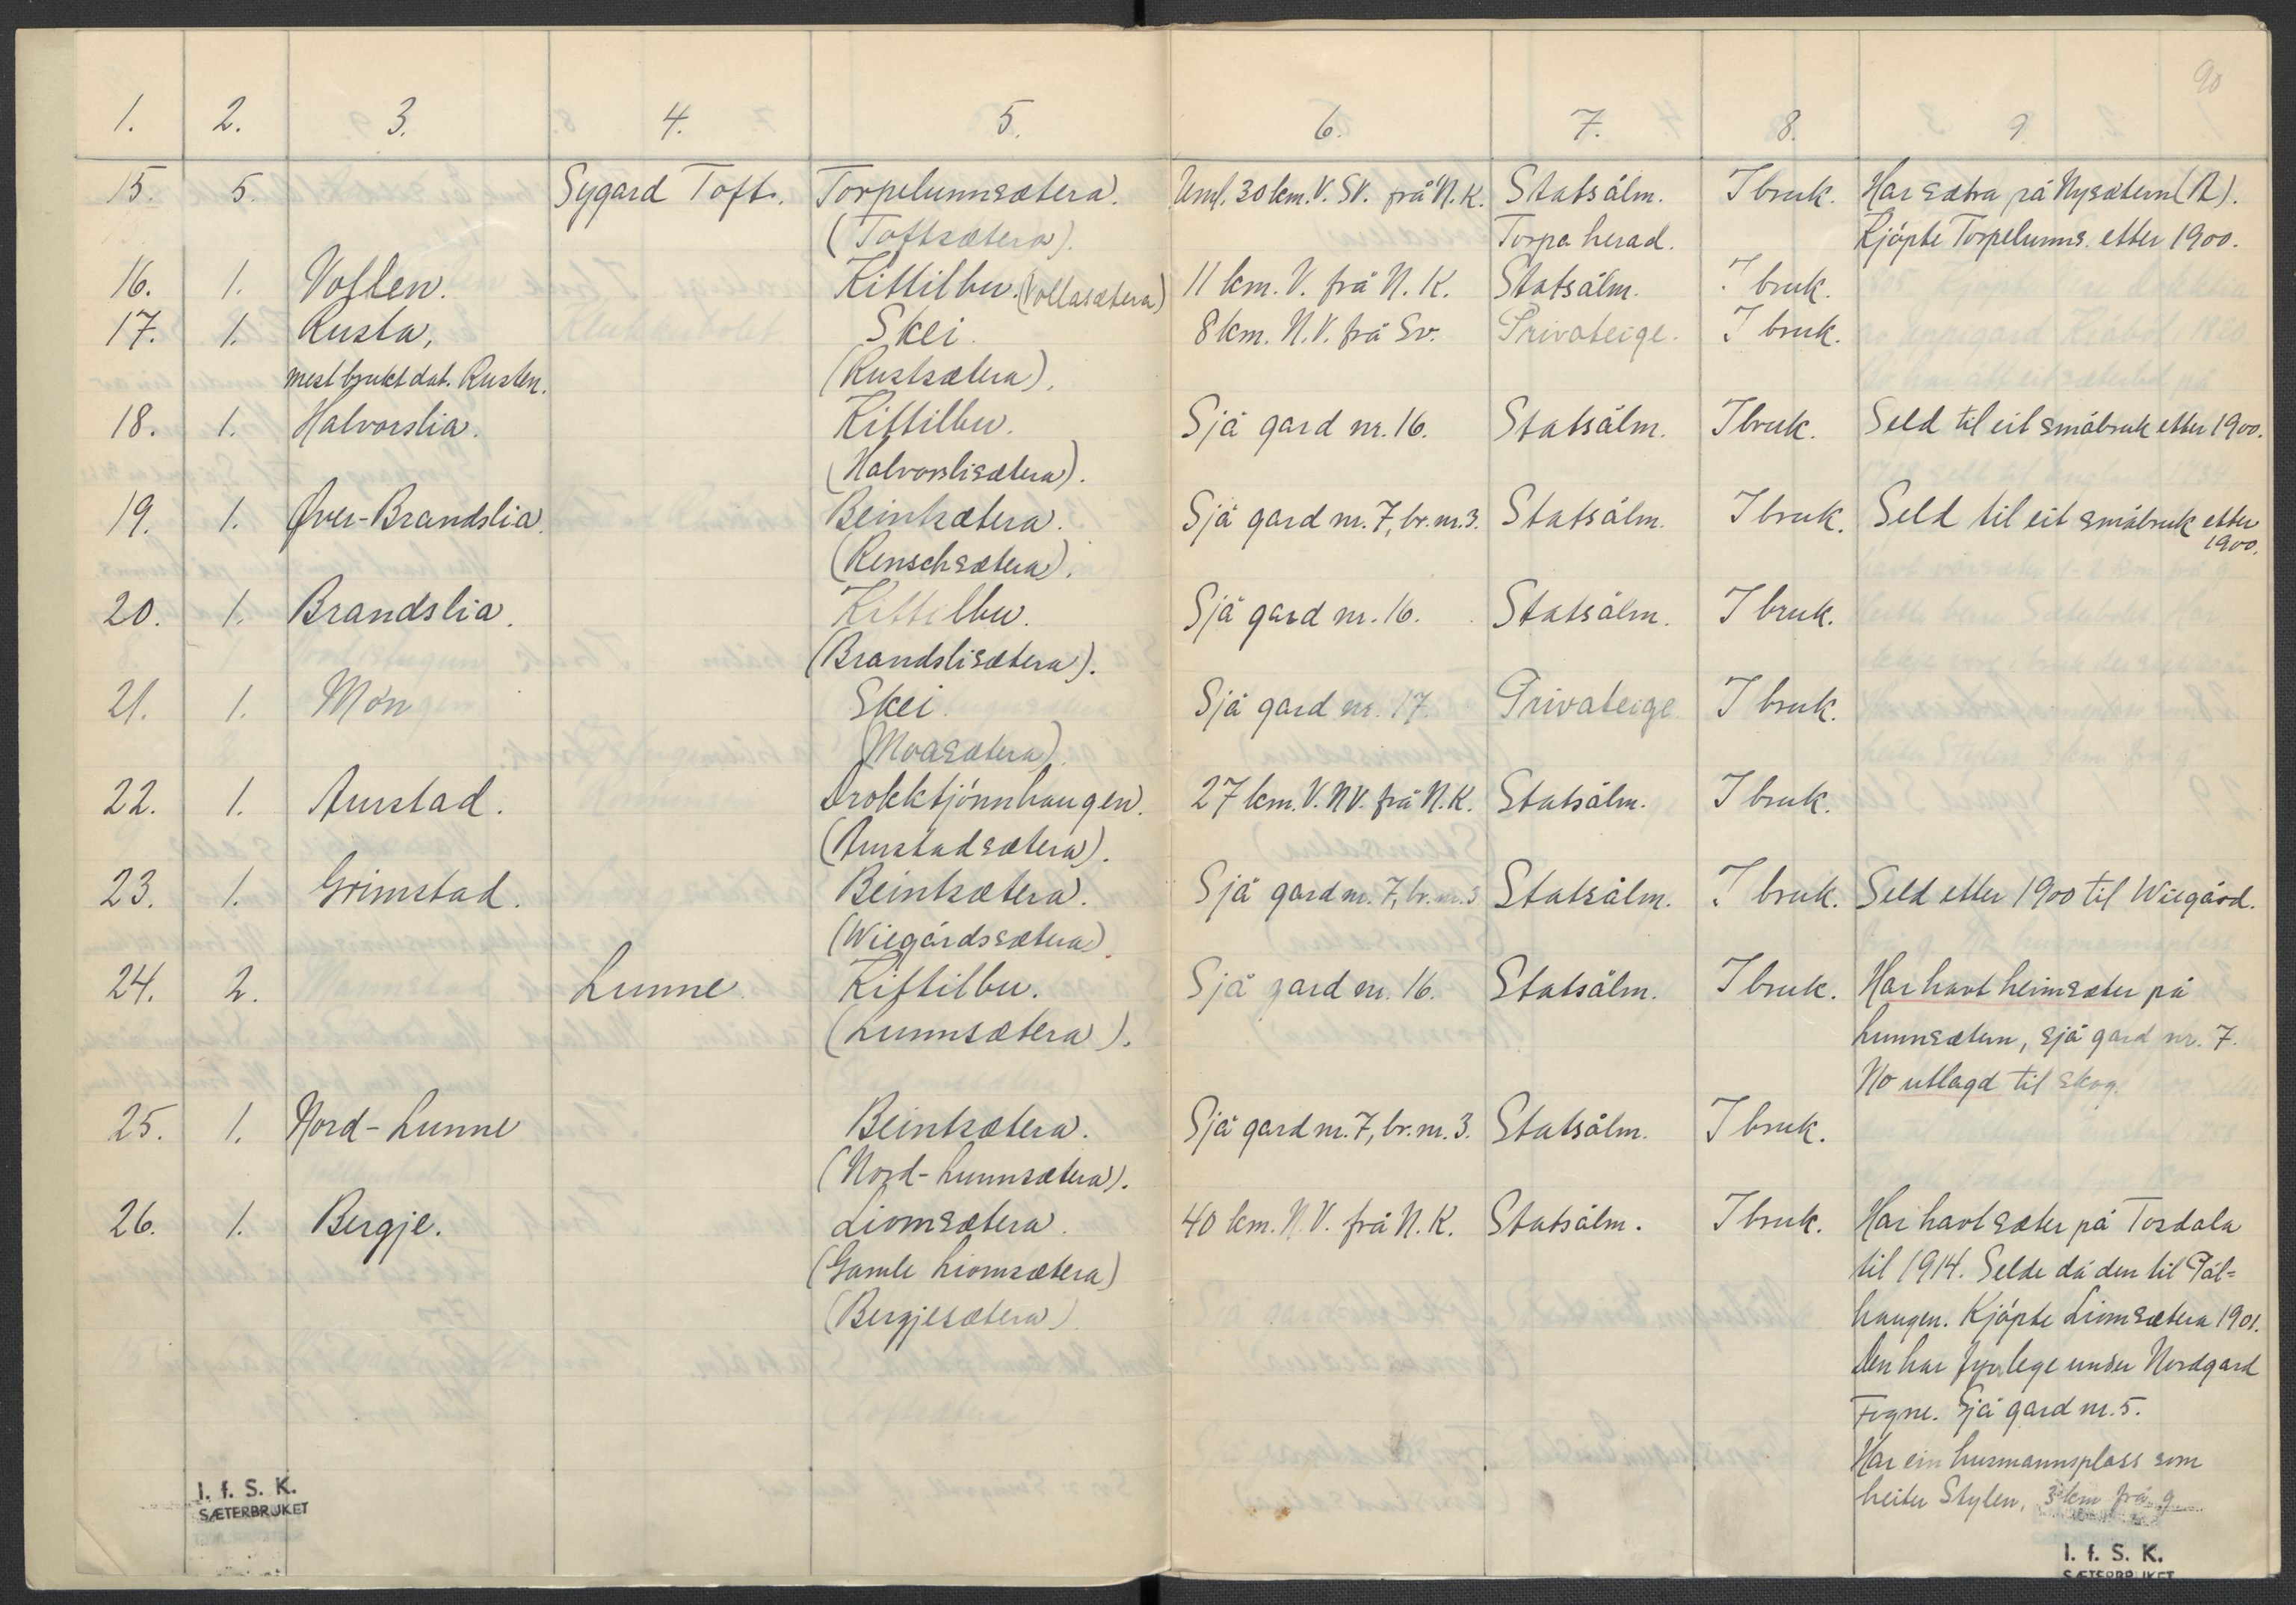 90
1. 2. 3. 4. 5. 6. 7. 8. 9
15. 5. Sygard Toft. Torpelunnsætera. Uml. 30 km. V. SV. frå N. K. Statsålm. I bruk. Har sætra på Nysætern (A).
(Toftsætera). Torpa herad. Kjöpte Torpelunns. etter 1900.
16. 1. Vollen. Kittilbu. (Vollasætera) 11 km. V. frå N. K. Statsålm. I bruk.
17. 1. Rusta, Skei. 8 km. N.V. frå Sv. Privateige. I bruk.
mest brukt dat. Rusten. (Rustsætera).
18. 1. Halvorslia. Kittilbu. Sjå gard nr. 16. Statsålm. I bruk. Seld til eit småbruk etter 1900.
(Halvorslisætera).
19. 1. Øver-Brandslia. Beintsætera. Sjå gard nr. 7, br. nr. 3. Statsålm. I bruk. Seld til eit småbruk etter
1900.
(Renschsætera).
20. 1. Brandslia. Kittilbu. Sjå gard nr. 16. Statsålm. I bruk.
(Brandslisætera).
21. 1. Mo'n Skei. Sjå gard nr. 17. Privateige I bruk.
(Moasætera).
22. 1. Aurstad. Drokktjönnhaugen. 27 km. V. NV. frå N. K. Statsålm. I bruk.
(Aurstadsætera).
23. 1. Grimstad. Beintsætera. Sjå gard nr. 7, br. nr. 3 Statsålm. I bruk. Seld etter 1900 til Wiegård.
(Wiegårdssætera).
24. 2. Lunne. Kittilbu. Sjå gard nr. 16. Statsålm. I bruk. Har havt heimsæter på
(Lunnsætera). Lunnsætern, sjå gard nr. 7.
No utlagd til skog.
25. 1. Nord-Lunne Beintsætera. Sjå gard nr. 7, br. nr. 3. Statsålm. I bruk.
(Nord-Lunnsætera).
26. 1. Bergje. Liomsætera. 40 km. N.V. frå N. K. Statsålm. I bruk. Har havt sæter på Tosdala
(Gamle Liomsætera) til 1914. Selde då den til Pål-
(Bergjesætera) haugen. Kjöpte Liomsætera 1901.
Den har fyrr lege under Nordgard
Fogne. Sjå gard nr. 5.
Har ein husmannsplass som
heiter Stylen, 3 km frå g
I. f. S. K.
SÆTERBRUKET
I. f. S. K.
SÆTERBRUKET